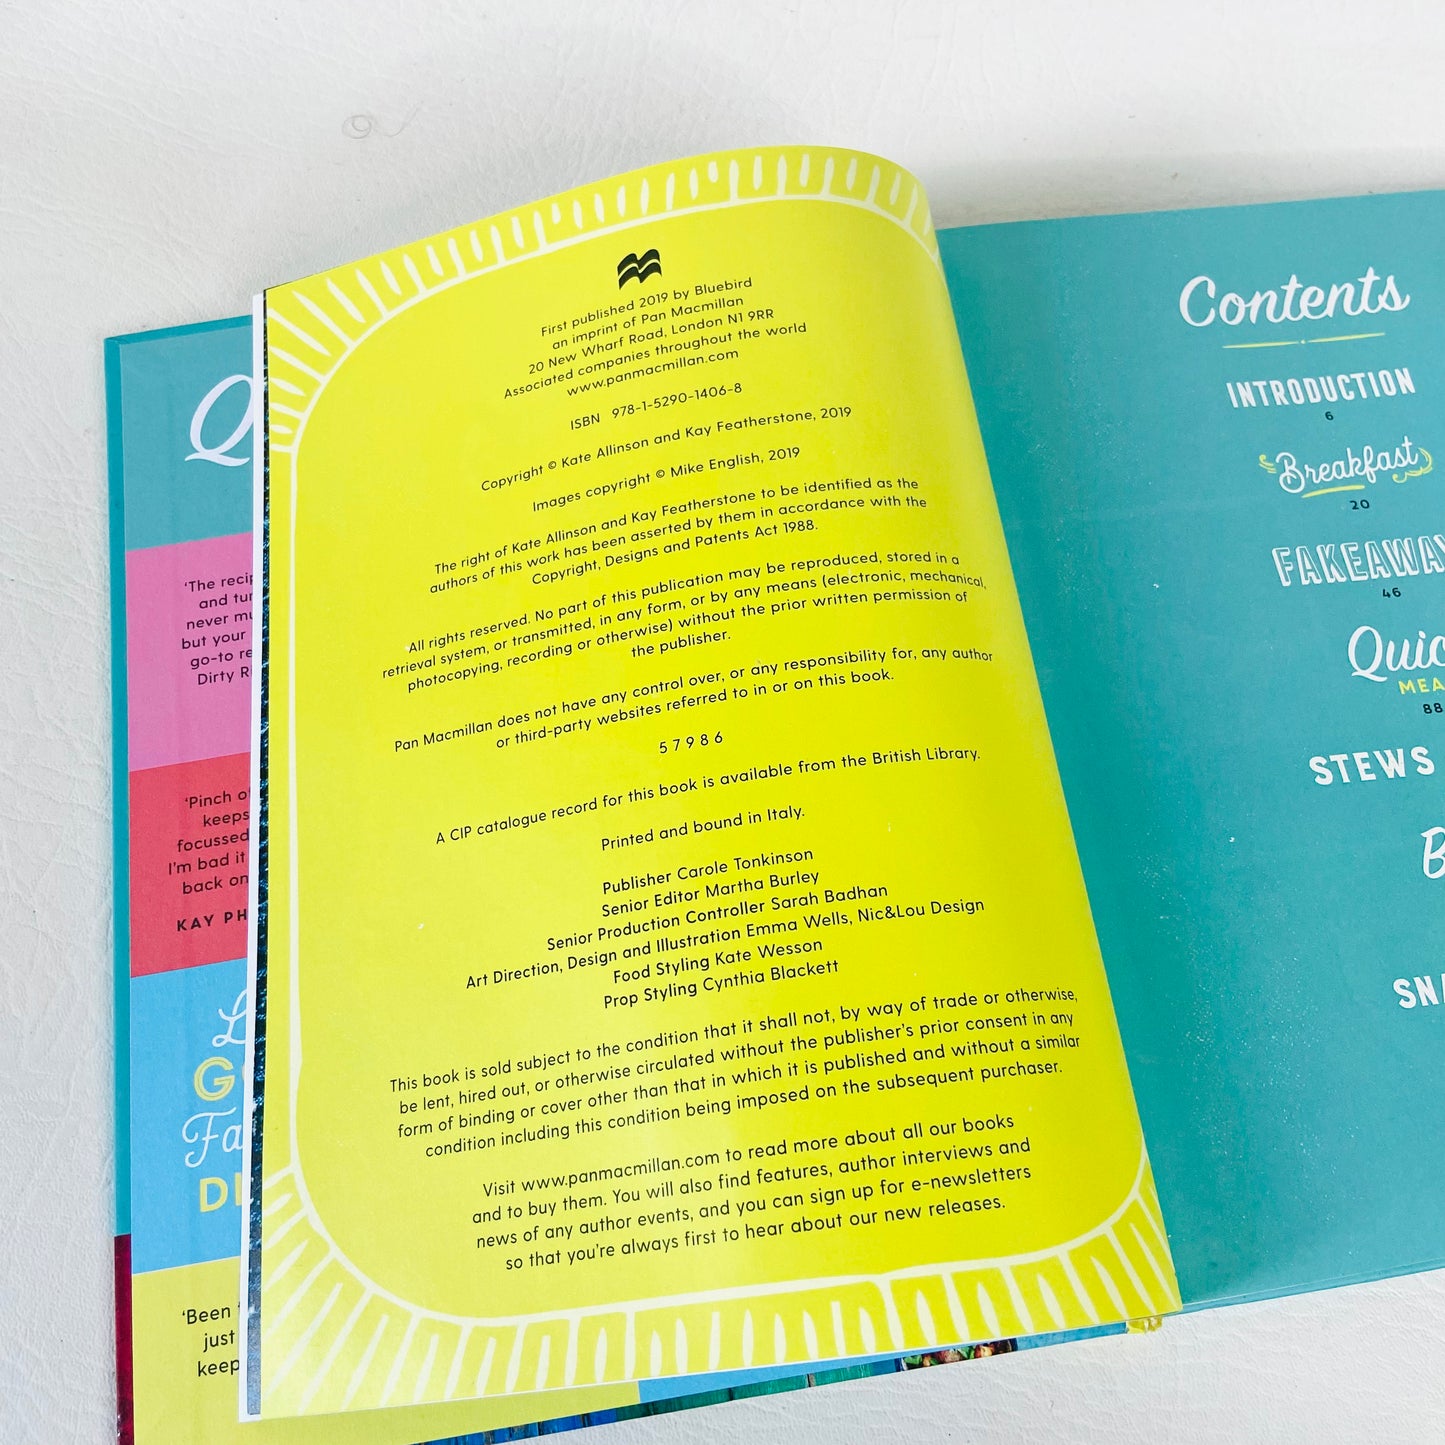 Q
'The
and
never
but your
go-to
Dirty
'Pinch
keeps
focussed
I'm bad it
back on
KAY
'Been
just
keep
First published 2019 by Bluebird
an imprint of Pan Macmillan
20 New Wharf Road, London N1 9RR
Associated companies throughout the world
www.panmacmillan.com
ISBN 978-1-5290-1406-8
Copyright © Kate Allinson and Kay Featherstone, 2019
Images copyright © Mike English, 2019
The right of Kate Allinson and Kay Featherstone to be identified as the
authors of this work has been asserted by them in accordance with the
Copyright, Designs and Patents Act 1988.
All rights reserved. No part of this publication may be reproduced, stored in a
retrieval system, or transmitted, in any form, or by any means (electronic, mechanical,
photocopying, recording or otherwise) without the prior written permission of
the publisher.
Pan Macmillan does not have any control over, or any responsibility for, any author
or third-party websites referred to in or on this book.
5 7 9 8 6
A CIP catalogue record for this book is available from the British Library.
Printed and bound in Italy.
Publisher Carole Tonkinson
Senior Editor Martha Burley
Senior Production Controller Sarah Badhan
Art Direction, Design and Illustration Emma Wells, Nic&Lou Design
Food Styling Kate Wesson
Prop Styling Cynthia Blackett
This book is sold subject to the condition that it shall not, by way of trade or otherwise,
be lent, hired out, or otherwise circulated without the publisher's prior consent in any
form of binding or cover other than that in which it is published and without a similar
condition including this condition being imposed on the subsequent purchaser.
Visit www.panmacmillan.com to read more about all our books
and to buy them. You will also find features, author interviews and
news of any author events, and you can sign up for e-newsletters
so that you're always first to hear about our new releases.
Contents
INTRODUCTION
6
Breakfast
20
FAKEAWAY
46
Quic
MEA
88
STEWS
B
SNA